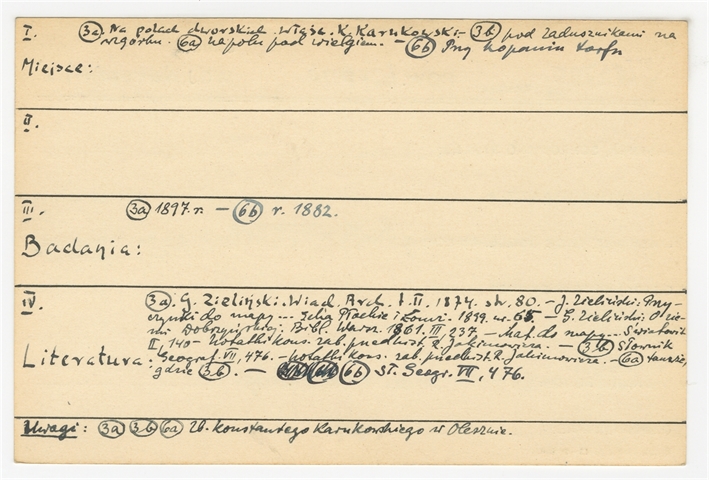 I. (3a) Na polach dworskich. Właśc. K. Karnkowski – (3b) pod Zadusznikami na
wzgórku. (6a) na polu pod Wielgiem. – (6b) Przy kopaniu torfu
Miejsce:
II.
III. (3a) 1897 r. – (6b) r. 1882.
Badania:
IV. (3a). G. Zieliński. Wiad. Arch. t. II. 1874. str. 80. – J. Zieliński: Przy-
czynki do mapy... Echa Płockie i Łomż. 1899. nr. 65 – G. Zieliński: O zie-
mi Dobrzyńskiej. Bibl. Warsz. 1861. III, 237. – Mat. do mapy... Światowit
II, 140 – notatki kons. zab. przedhist. R. Jakimowicza. – (3b) Słownik
Literatura: Geograf. VII, 476. – notatki kons. zab. przedhist. R. Jakimowicza. – (6a) tamże,
gdzie 3b. – (6b) Sł. Geogr. VII, 476.
Uwagi: (3a) (3b) (6a) Zb. Konstantego Karnkowskiego w Olesznie.